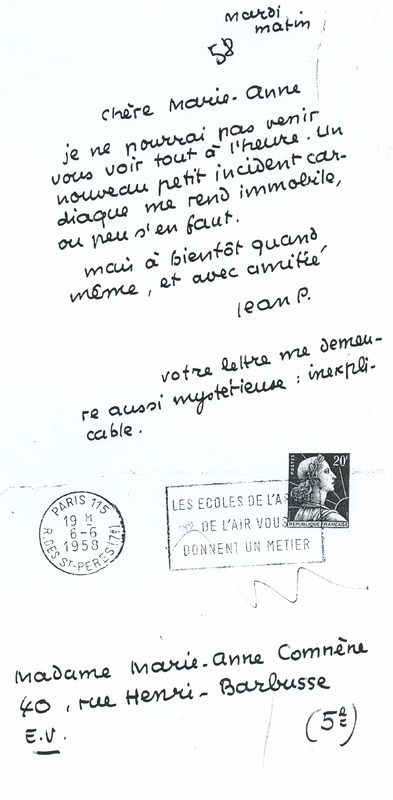 mardi
matin
58
Chère Marie-Anne
je ne pourrai pas venir
vous voir tout à l'heure. Un
nouveau petit incident car-
diaque me rend immobile,
ou peu s'en faut.
mais à bientôt quand
même, et avec amitié
Jean P.
votre lettre me demeu-
re aussi mystérieuse : inexpli-
cable.
POSTES
20F
REPUBLIQUE FRANÇAISE
PARIS 115
19 H
6-6
1958
R. DES ST-PERES (7e)
LES ECOLES DE L'A
DE L'AIR VOUS
DONNENT UN METIER
Madame Marie-Anne Comnène
40, rue Henri-Barbusse
E.V.
(5e)